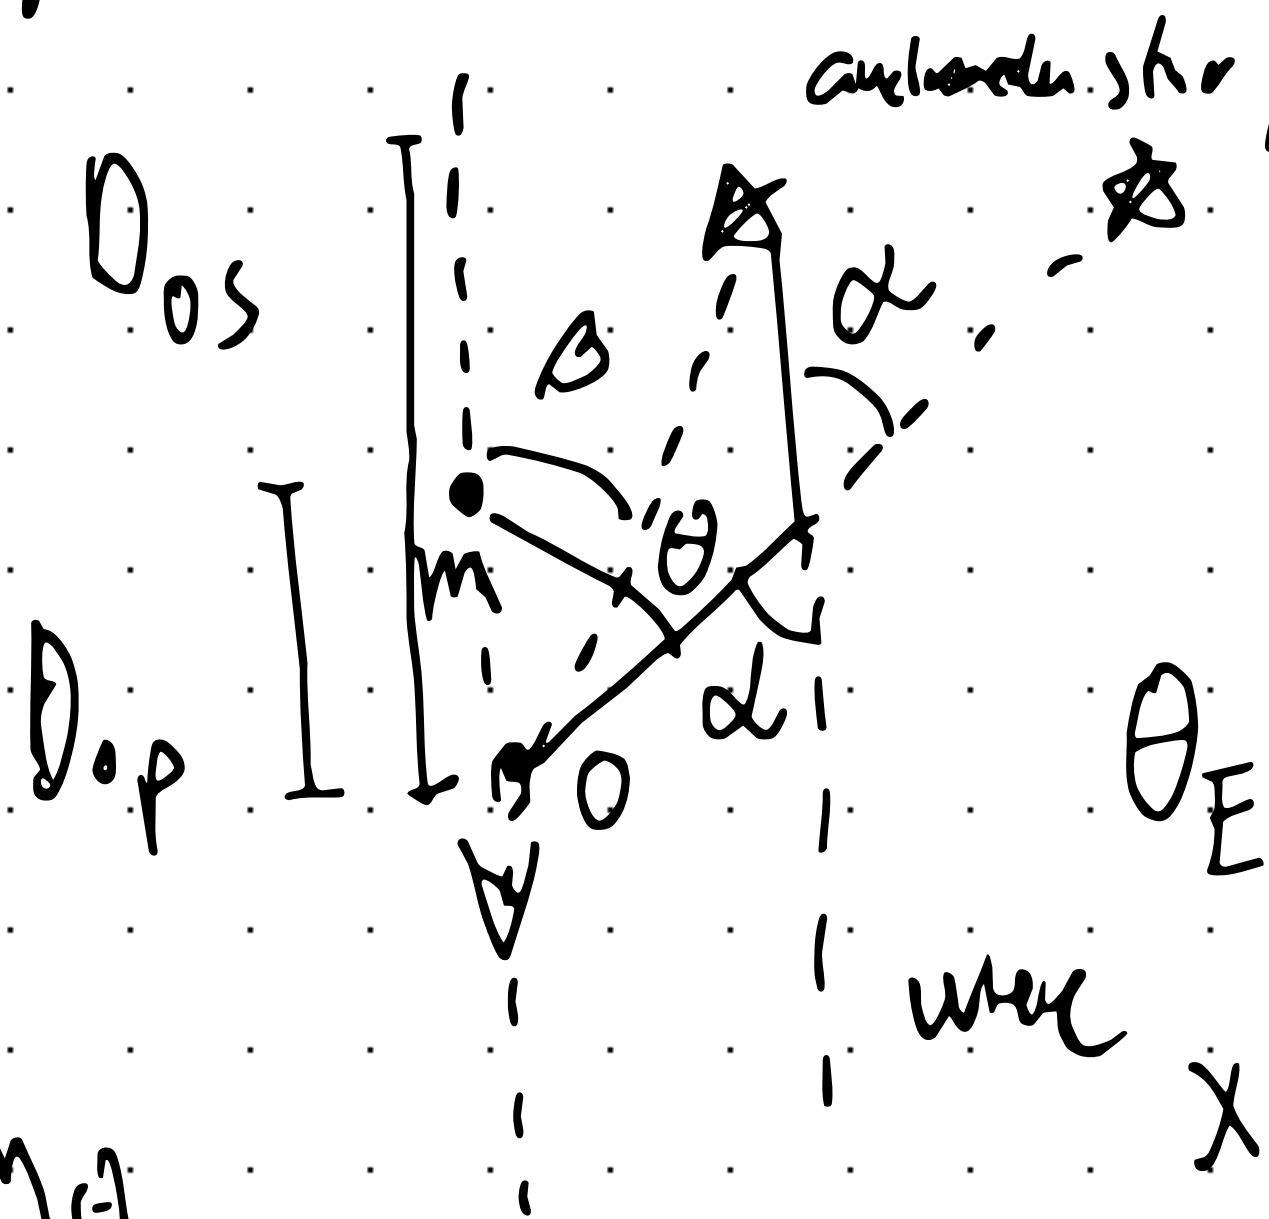 star
D_os
α
β
θ
m
α
D_op
O
θ_E
where
x